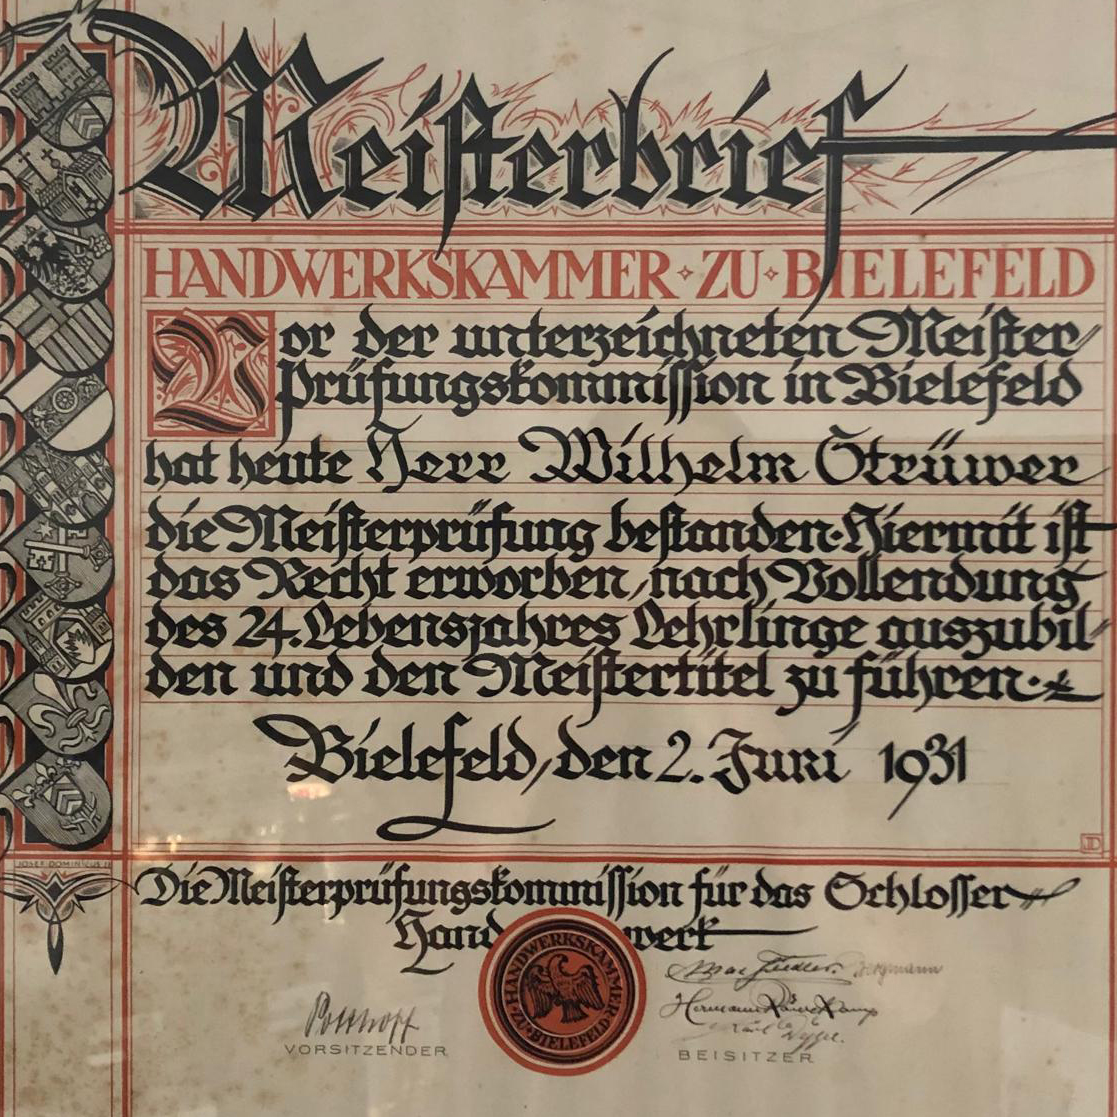 Meisterbrief
HANDWERKSKAMMER · ZU · BIELEFELD
Vor der unterzeichneten Meister-
Prüfungskommission in Bielefeld
hat heute Herr Wilhelm Strüwer
die Meisterprüfung bestanden·Hiermit ist
das Recht erworben, nach Vollendung
des 24. Lebensjahres Lehrlinge auszubil-
den und den Meistertitel zu führen·
Bielefeld, den 2. Juni 1931
JD
JOSEF DOMINICUS
Die Meisterprüfungskommission für das Schlosser-
Handwerk
HANDWERKSKAMMER
·ZU·BIELEFELD·
Potthoff
VORSITZENDER
Max Fiedler. Bergmann
Hermann
Karl
BEISITZER